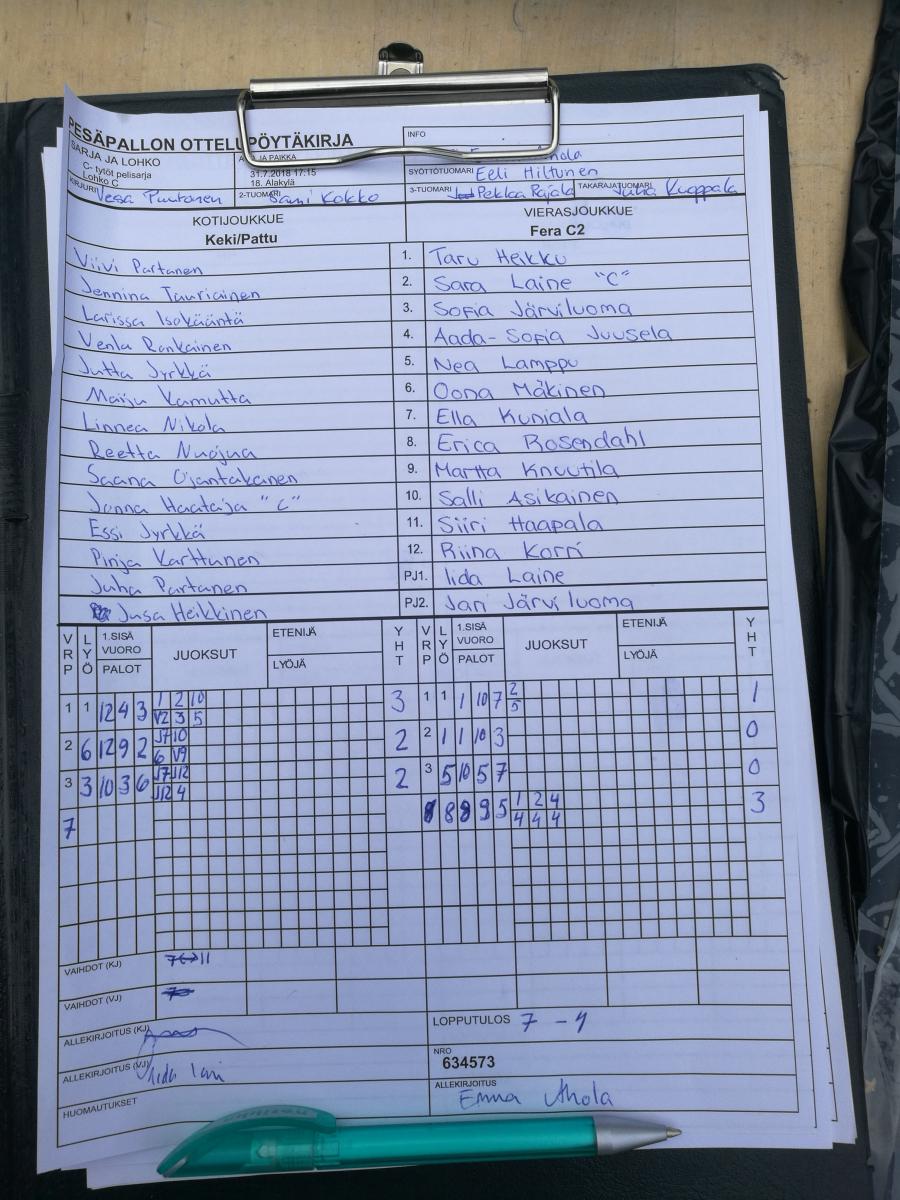 PESÄPALLON OTTELUPÖYTÄKIRJA
INFO
SARJA JA LOHKO
C- tytöt pelisarja
Lohko C
JA PAIKKA
31.7.2018 17:15
18. Alakylä
SYÖTTÖTUOMARI Eeli Hiltunen
KIRJURI Vesa Puutonen
2-TUOMARI Sami Kokko
3-TUOMARI Pekka Rajala
TAKARAJATUOMARI Juha Kuoppala
KOTIJOUKKUE
Keki/Pattu
VIERASJOUKKUE
Fera C2
Viivi Partanen 1. Taru Heikku
Jennina Tauriainen 2. Sara Laine "C"
Larissa Isokääntä 3. Sofia Järviluoma
Venla Ronkainen 4. Aada-Sofia Juusela
Jutta Jyrkkä 5. Nea Lamppu
Maiju Kamutta 6. Oona Mäkinen
Linnea Nikola 7. Ella Kuniala
Reetta Nuojua 8. Erica Rosendahl
Saana Ojantakanen 9. Martta Knuutila
Jonna Haataja "C" 10. Salli Asikainen
Essi Jyrkkä 11. Siiri Haapala
Pinja Karttunen 12. Riina Korri
Juha Partanen PJ1. Iida Laine
Jusa Heikkinen PJ2. Jari Järviluoma
VRP LYÖ 1.SISÄ VUORO PALOT JUOKSUT ETENIJÄ LYÖJÄ YHT VRP LYÖ 1.SISÄ VUORO PALOT JUOKSUT ETENIJÄ LYÖJÄ YHT
1 1 12 4 3 1 2 10 3 1 1 1 10 7 2 1
V2 3 5 5
2 6 12 9 2 J7 10 2 2 1 1 10 3 0
6 V9
3 3 10 3 6 J7 J12 2 3 5 10 5 7 0
J12 4
8 8 9 5 1 2 4 3
7 4 4 4
VAIHDOT (KJ) 7↔11
VAIHDOT (VJ)
ALLEKIRJOITUS (KJ)
LOPPUTULOS 7 - 4
ALLEKIRJOITUS (VJ)
NRO
634573
HUOMAUTUKSET
ALLEKIRJOITUS
Emma Ahola